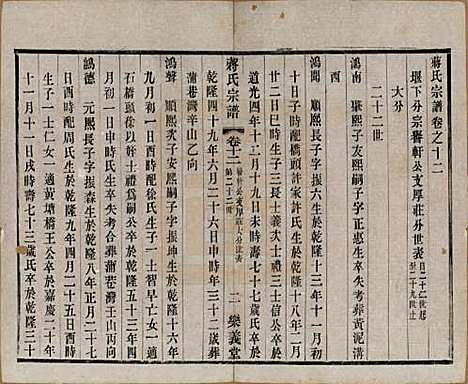 蔣氏宗譜卷之十二
堰下分宗醫軒公支厚莊外世表 自二十二世起至二十九世止
大分
二十二世
酉
鴻南 肇熙子友熙嗣子字正惠生卒失考葬黃泥溝
鴻聞 順熙長子字振 生於乾隆十三年十一月初
十日子時配橋頭許家許氏生於乾隆十八年二月
廿二日巳時生子三長士義次士禮三士信公卒於
道光四年十二月十九日未時壽七十七歲氏卒於
蔣氏宗譜 卷十二 二 樂義堂
乾隆四十九年六月二十六日申時年三十二歲葬
蒲巷灣辛山乙向
鴻聲 順熙次子安熙嗣子字振坤生於乾隆十六年
九月初一日申時配徐氏生子一士習早亡女一適
石橋頭徐以幹公卒於乾隆五十二年五十三年
月初一日申時氏生卒失考合葬蒲巷灣王山丙向
鴻德 元熙長子字振森生於乾隆八年正月二十七
日酉時配周氏生於乾隆九年四月二十五日戌時
生子一士仁女一適黃塘橋王公卒於嘉慶二十年
十一月十一日戌時壽七十三歲氏卒於乾隆三十